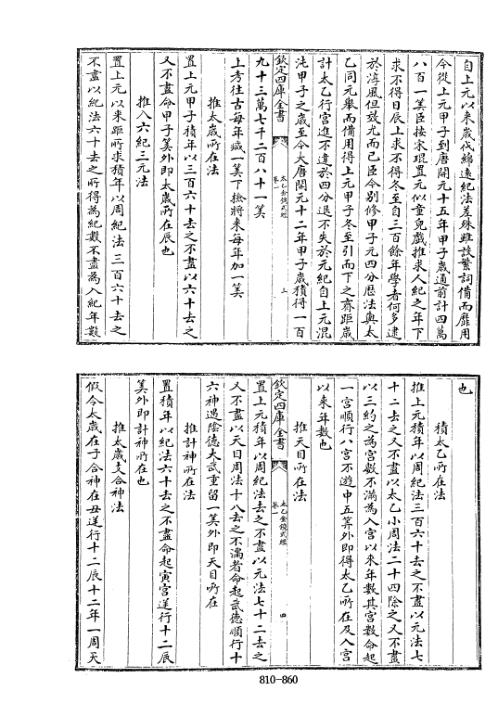 自上元以來歲代綿遠紀法差殊雖該繁詞備而靡用
今從上元甲子到唐開元十五年甲子歲通前計四萬
八百一筭臣按宋琨置元似童兒戲推求人紀之年下
求不得日辰上求不得冬至自三百餘年學者何多逮
於淳風但效尤而已臣今别修甲子元四分歷法與太
乙同元舉而備用得上元甲子冬至引而下之齊距歲
計太乙行宮進不違於四分退不失於元紀自上元混
沌甲子之歲至今大唐開元十二年甲子歲積得一百
欽定四庫全書
太乙金鏡式經
卷一
九十三萬七千二百八十一筭
上考往古每年減一筭下撿將來每年加一筭
推太歲所在法
置上元甲子積年以三百六十去之不盡以六十去之
又不盡命甲子筭外即太歲所在辰也
推入六紀三元法
置上元以來距所求積年以周紀法三百六十去之
不盡以紀法六十去之所得為紀數不盡為入紀年數
也
積太乙所在法
推上元積年以周紀法三百六十去之不盡以元法七
十二去之又不盡以太乙小周法二十四除之又不盡
以三約之為宮數不滿為入宮以來年數其宮數命起
一宮順行八宮不遊中五筭外即得太乙所在及入宮
以來年數也
推天目所在法
欽定四庫全書
太乙金鏡式經
卷一
四
置上元積年以周紀法去之不盡以元法七十二去之
又不盡以天目周法十八去之不滿者命起武德順行十
六神遇陰德大武重留一筭外即天目所在
推計神所在法
置積年以紀法六十去之不盡命起寅宮逆行十二辰
筭外即計神所在也
推太歲支合神法
假令太歲在子合神在丑逆行十二辰十二年一周天
810-860